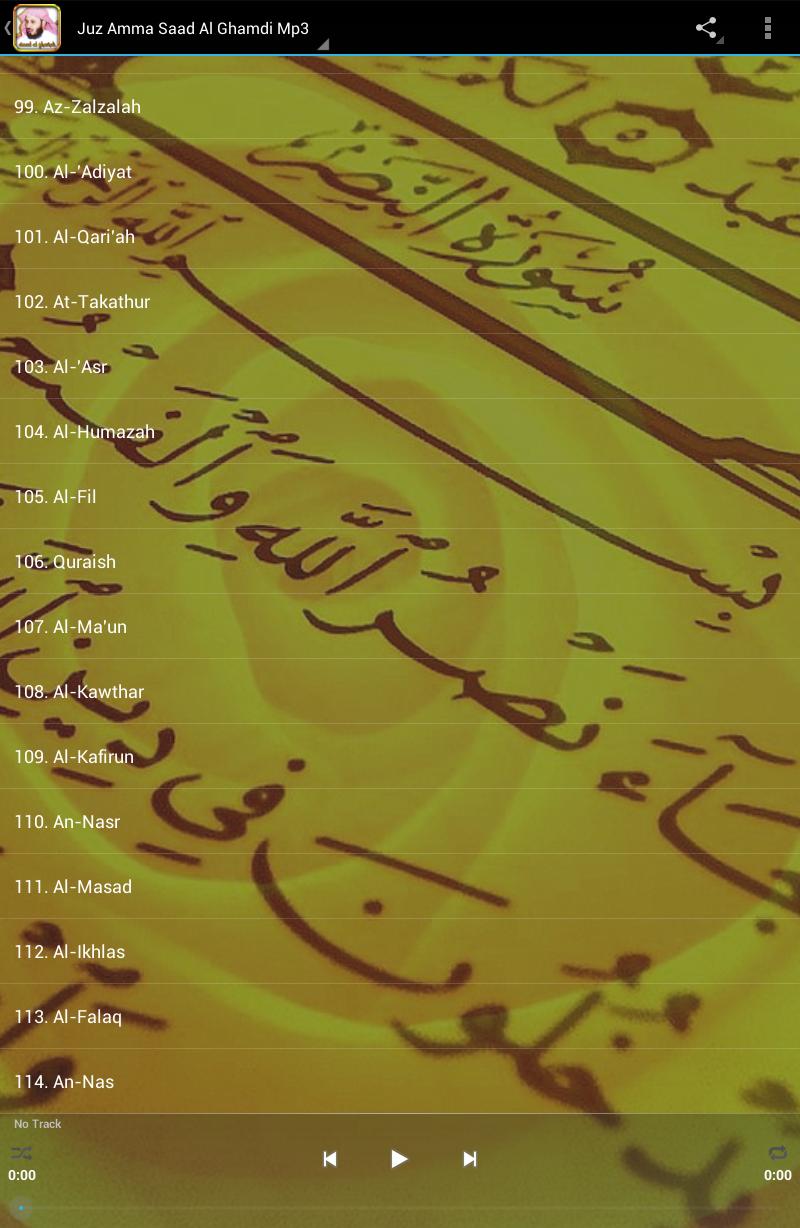 Juz Amma Saad Al Ghamdi Mp3
99. Az-Zalzalah
100. Al-'Adiyat
101. Al-Qari'ah
102. At-Takathur
103. Al-'Asr
104. Al-Humazah
105. Al-Fil
106. Quraish
107. Al-Ma'un
108. Al-Kawthar
109. Al-Kafirun
110. An-Nasr
111. Al-Masad
112. Al-Ikhlas
113. Al-Falaq
114. An-Nas
No Track
0:00
0:00
سُورَةُ النَّصْرِ
نَصْرُ اللَّهِ وَالْفَتْحُ
فِي دِينِ